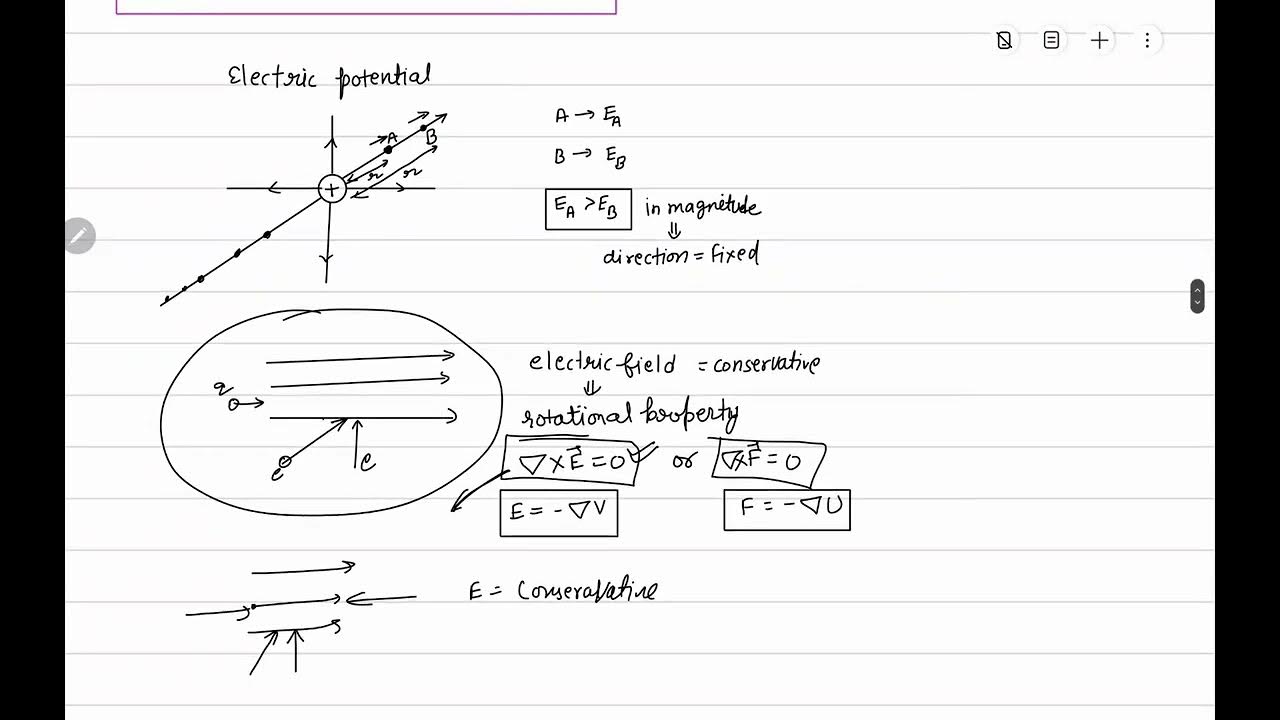 Electric potential
A → E_A
A B
B → E_B
r r
+
E_A > E_B in magnitude
⇓
direction = fixed
electric field = conservative
q
⇓
rotational property
∇ × E⃗ = 0 or ∇×F⃗ = 0
e e
E = -∇V F = -∇U
E = Conseravative